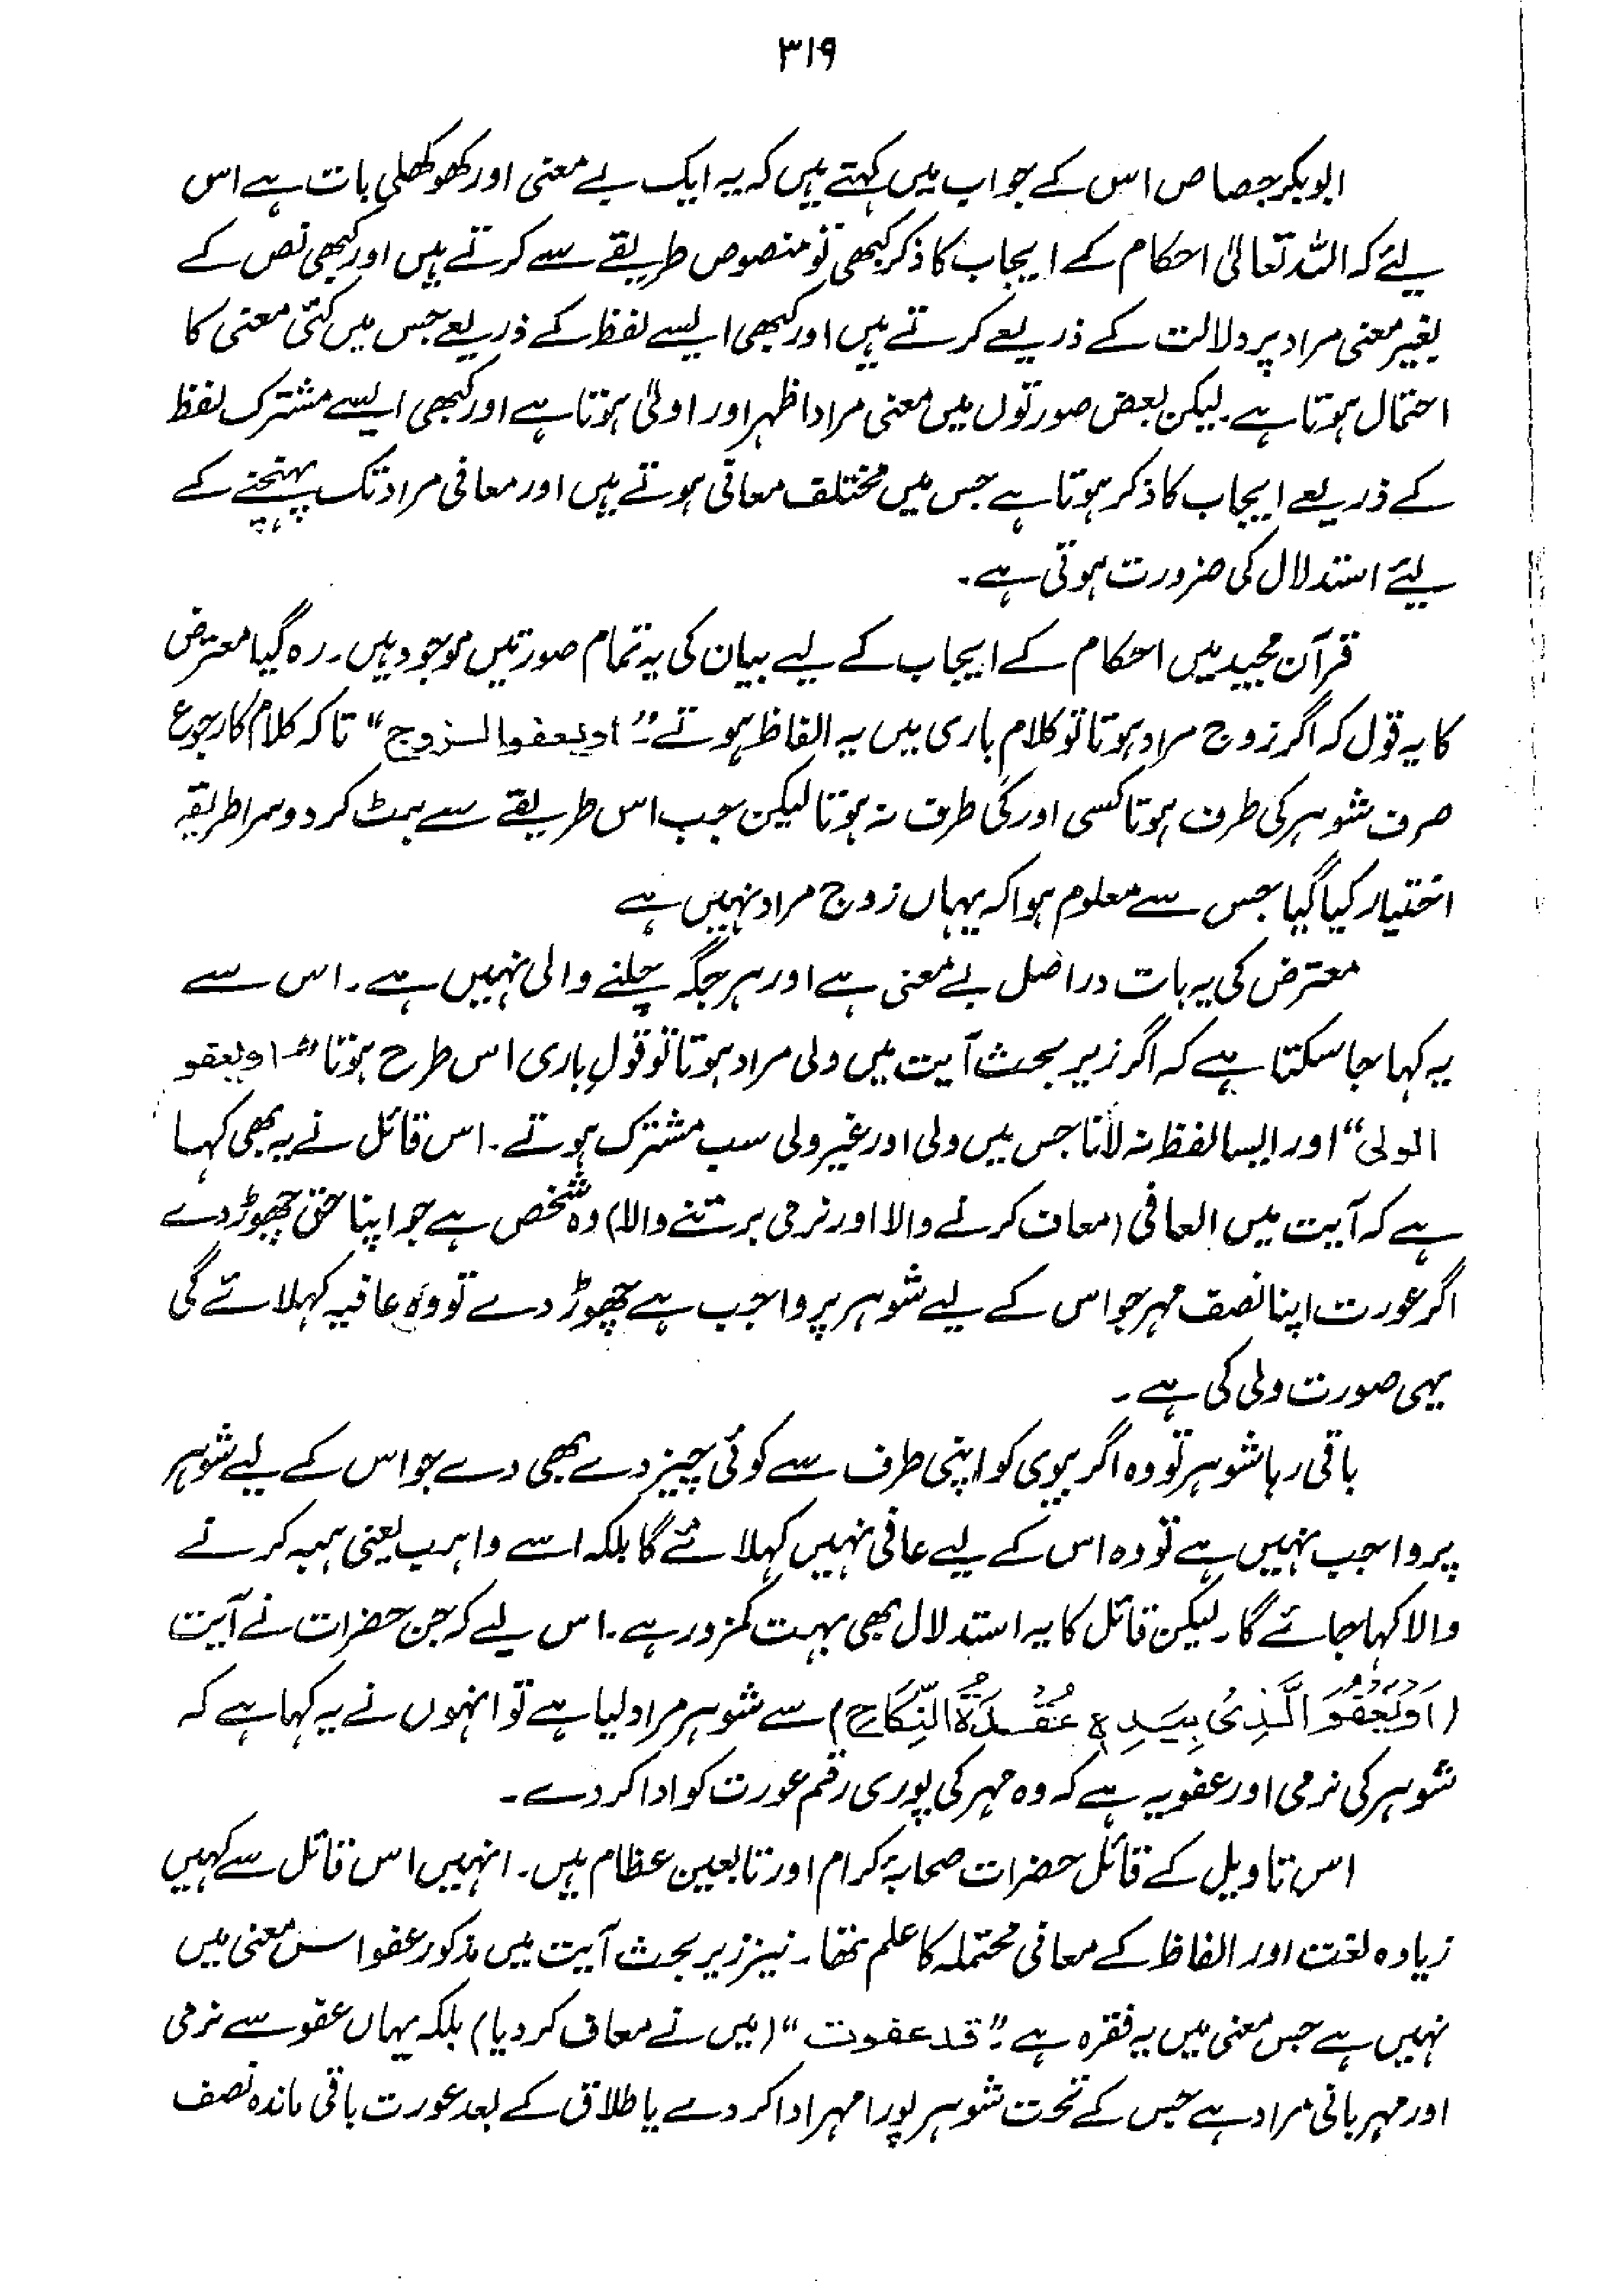 ۳۱۹
ابوبکر جصاص اس کے جواب میں کہتے ہیں کہ یہ ایک بے معنی اور کھوکھلی بات ہے اس
لئے کہ اللہ تعالیٰ احکام کے ایجاب کا ذکر کبھی تو منصوص طریقے سے کرتے ہیں اور کبھی نص کے
بغیر معنی مراد پر دلالت کے ذریعے کرتے ہیں اور کبھی ایسے لفظ کے ذریعے جس میں کئی معنی کا
احتمال ہوتا ہے۔ لیکن بعض صورتوں میں معنی مراد اظہر اور اولیٰ ہوتا ہے اور کبھی ایسے مشترک لفظ
کے ذریعے ایجاب کا ذکر ہوتا ہے جس میں مختلف معانی ہوتے ہیں اور معانی مراد تک پہنچنے کے
لیئے استدلال کی ضرورت ہوتی ہے۔
قرآن مجید میں احکام کے ایجاب کے لیے بیان کی یہ تمام صورتیں موجود ہیں۔ رہ گیا معترض
کا یہ قول کہ اگر زوج مراد ہوتا تو کلام باری میں یہ الفاظ ہوتے۔" او یعفو الزوج" تاکہ کلام کا رجوع
صرف شوہر کی طرف ہوتا کسی اور کی طرف نہ ہوتا لیکن جب اس طریقے سے ہٹ کر دوسرا طریقہ
اختیار کیا گیا جس سے معلوم ہوا کہ یہاں زوج مراد نہیں ہے
معترض کی یہ بات دراصل بے معنی ہے اور ہر جگہ چلنے والی نہیں ہے۔ اس سے
یہ کہا جا سکتا ہے کہ اگر زیر بحث آیت میں ولی مراد ہوتا تو قول باری اس طرح ہوتا "او یعفو
الولی" اور ایسا لفظ نہ لاتا جس میں ولی اور غیر ولی سب مشترک ہوتے۔ اس قائل نے یہ بھی کہا
ہے کہ آیت میں العافی (معاف کرنے والا اور نرمی برتنے والا) وہ شخص ہے جو اپنا حق چھوڑ دے
اگر عورت اپنا نصف مہر جو اس کے لیے شوہر پر واجب ہے چھوڑ دے تو وہ عافیہ کہلائے گی
یہی صورت ولی کی ہے۔
باقی رہا شوہر تو وہ اگر بیوی کو اپنی طرف سے کوئی چیز دے بھی دے جو اس کے لیے شوہر
پر واجب نہیں ہے تو وہ اس کے لیے عافی نہیں کہلائے گا بلکہ اسے واہب یعنی ہبہ کرنے
والا کہا جائے گا۔ لیکن قائل کا یہ استدلال بھی بہت کمزور ہے۔ اس لیے کہ جن حضرات نے آیت
(اَوْ یَعْفُوَ الَّذِیْ بِیَدِہٖ عُقْدَۃُ النِّکَاحِ) سے شوہر مراد لیا ہے تو انہوں نے یہ کہا ہے کہ
شوہر کی نرمی اور عفو یہ ہے کہ وہ مہر کی پوری رقم عورت کو ادا کر دے۔
اس تاویل کے قائل حضرات صحابۂ کرام اور تابعین عظام ہیں۔ انہیں اس قائل سے کہیں
زیادہ لغت اور الفاظ کے معانی محتملہ کا علم تھا۔ نیز زیر بحث آیت میں مذکور عفو اس معنی میں
نہیں ہے جس معنی میں یہ فقرہ ہے۔" قد عفوت" (میں نے معاف کر دیا) بلکہ یہاں عفو سے نرمی
اور مہربانی مراد ہے جس کے تحت شوہر پورا مہر ادا کر دے یا طلاق کے بعد عورت باقی ماندہ نصف